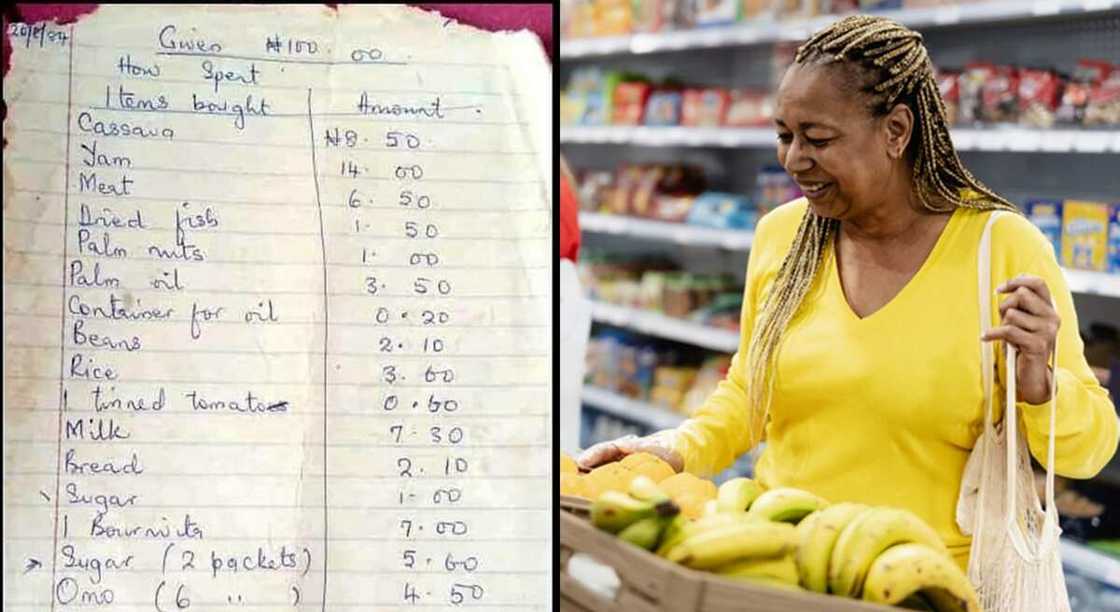 20/8/84
Given ₦100.00
How Spent
Items bought Amount
Cassava ₦8.50
Yam 14.00
Meat 6.50
Dried fish 1.50
Palm nuts 1.00
Palm oil 3.50
Container for oil 0.20
Beans 2.10
Rice 3.60
1 tinned tomato 0.60
Milk 7.30
Bread 2.10
Sugar 1.00
1 Bournvita 7.00
Sugar (2 packets) 5.60
Omo (6 " ) 4.50